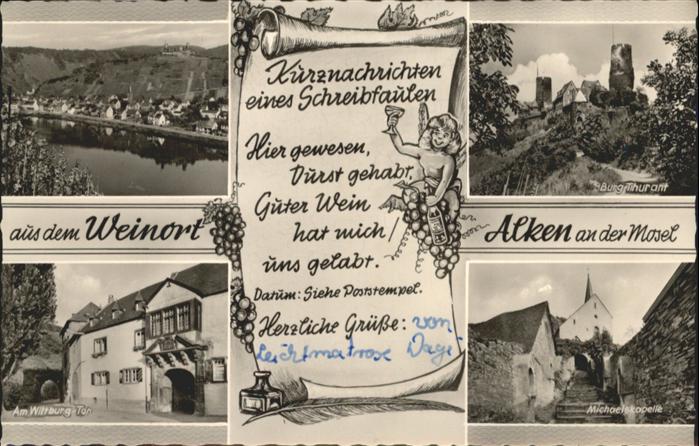 Kurznachrichten
eines Schreibfaulen
Hier gewesen,
Durst gehabt,
Guter Wein
hat mich
uns gelabt.
Datum: Siehe Poststempel.
Herzliche Grüße: von
Leichtmatrose Dagi
Burg Thurant
aus dem Weinort
Alken an der Mosel
Am Wiltburg-Tor
Michaelskapelle